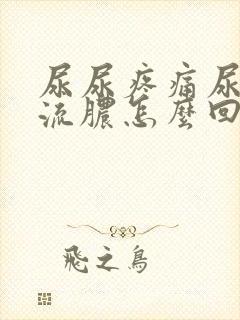 尿尿疼痛尿
流膿怎麼回
飛之鳥